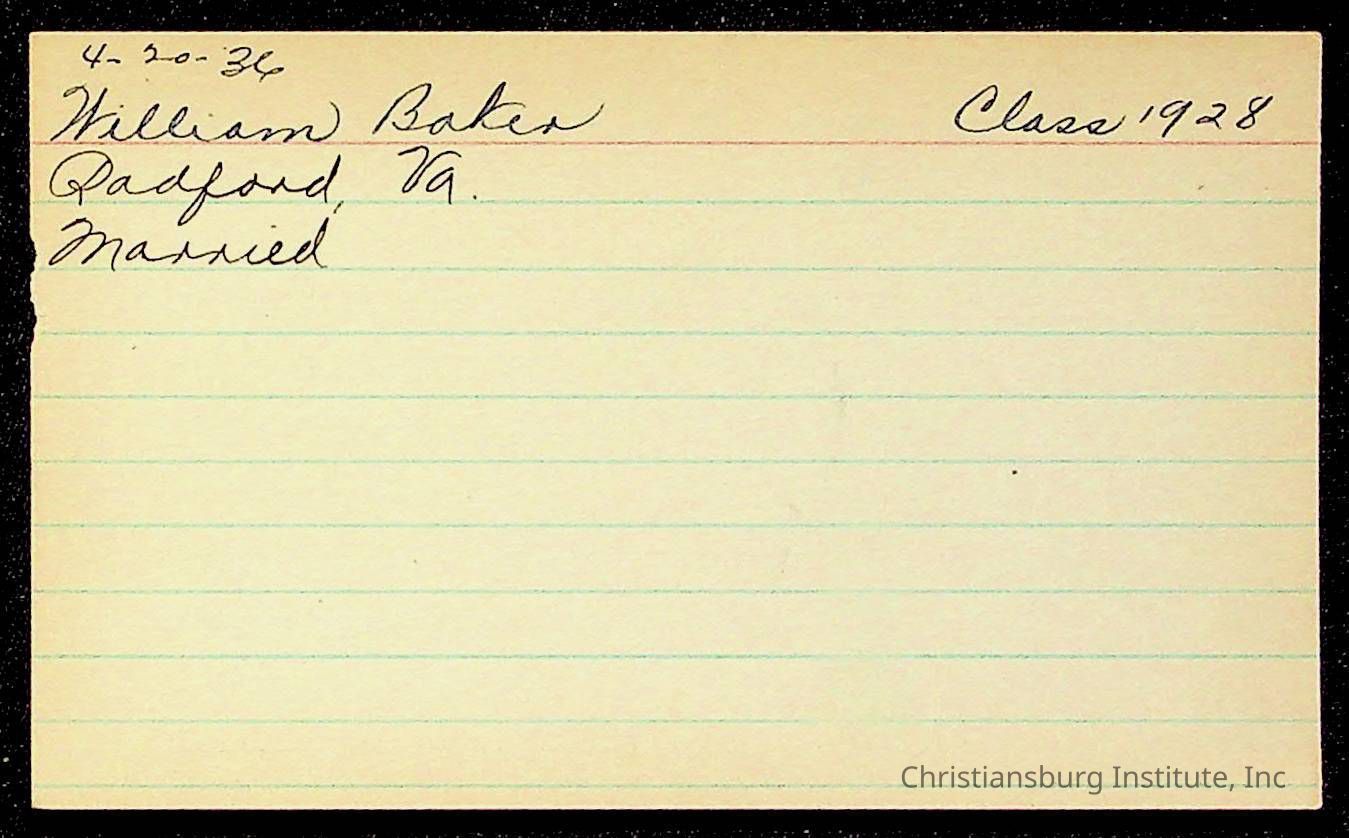 4-20-36
William Baker Class 1928
Radford, Va.
Married
Christiansburg Institute, Inc